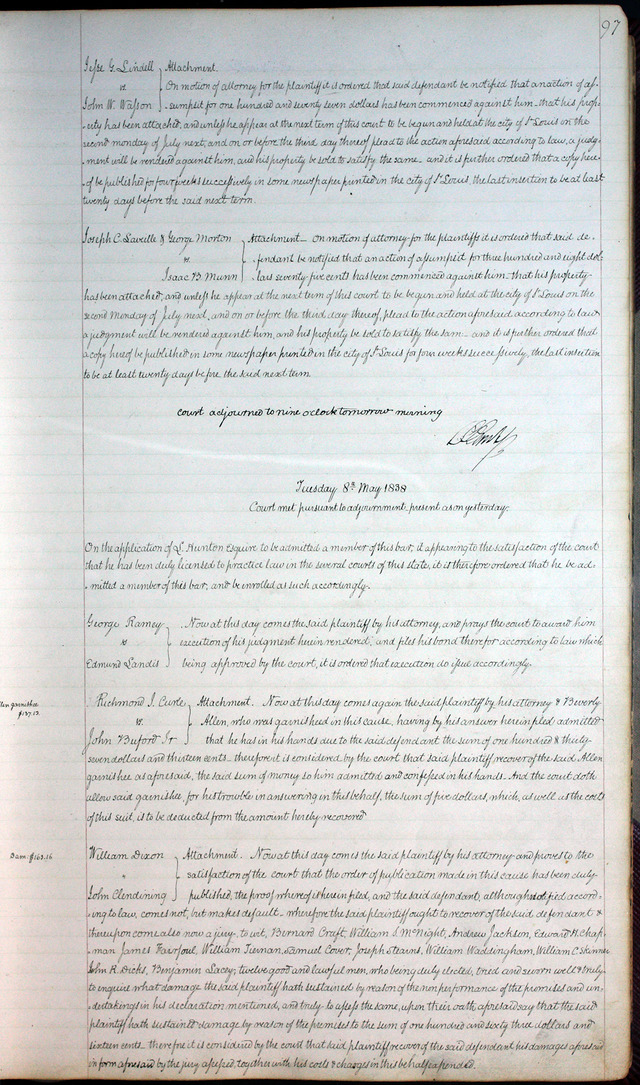 97
Jesse G. Lindell } Attachment.
vs. On motion of attorney for the plaintiff it is ordered that said defendant be notified that an action of as-
John W. Wasson } sumpsit for one hundred and seventy seven dollars has been commenced against him, that his prop-
erty has been attached, and unless he appear at the next term of this court to be begun and held at the city of St Louis on the
second monday of July next, and on or before the third day thereof plead to the action aforesaid according to law, a judg-
ment will be rendered against him, and his property be sold to satisfy the same. and it is further ordered that a copy here
of be published for four weeks successively in some newspaper printed in the city of St Louis, the last insertion to be at least
twenty days before the said next term.
Joseph C. Laveille & George Morton } Attachment – On motion of attorney for the plaintiffs it is ordered that said de-
vs. fendant be notified that an action of assumpsit for three hundred and eight dol-
Isaac B. Munn } lars seventy five cents has been commenced against him – that his property
has been attached, and unless he appear at the next term of this court to be begun and held at the city of St Louis on the
second Monday of July next, and on or before the third day thereof, plead to the action aforesaid according to law
a judgment will be rendered against him, and his property be sold to satisfy the sam – and it is further ordered that
a copy hereof be published in some newspaper printed in the city of St Louis for four weeks successively, the last insertion
to be at least twenty days before the said next term.
Court adjourned to nine oclock tomorrow morning
Tuesday 8th May 1838
Court met pursuant to adjournment present as on yesterday.
On the application of L. Hunton Esquire to be admitted a member of this bar, it appearing to the satisfaction of the court
that he has been duly licensed to practice law in the several courts of this state, it is therefore ordered that he be ad-
mitted a member of this bar, and be enrolled as such accordingly.
George Ramey } Now at this day comes the said plaintiff by his attorney, and prays the court to award him
vs execution of his judgment herein rendered, and files his bond therefor according to law which
Edmund Landis } being approved by the court, it is ordered that execution do issue accordingly.
Allen garnishee
$137.13.
Richmond J. Curle } Attachment. Now at this day comes again the said plaintiff by his attorney & Beverly
vs. Allen, who was garnisheed in this cause, having by his answer herein filed admitted
John Buford Jr } that he has in his hands due to the said defendant the sum of one hundred & thirty
seven dollars and thirteen cents – therefore it is considered by the court that said plaintiff recover of the said Allen
garnishee as aforesaid, the said sum of money so him admitted and confessed in his hands. And the court doth
allow said garnishee, for his trouble in answering in this behalf, the sum of five dollars, which, as well as the costs
of this suit, is to be deducted from the amount hereby recovered
Dam. $163.16
William Dixon } Attachment. Now at this day comes the said plaintiff by his attorney and proves to the
" satisfaction of the court that the order of publication made in this cause has been duly
John Clendining } published, the proof whereof is herein filed, and the said defendant, although notified accord-
ing to law, comes not, but makes default – wherefore the said plaintiff ought to recover of the said defendant &
thereupon comes also now a jury to wit, Bernard Craft, William S. McNight, Andrew Jackson, Edward H. Chap-
man James Fairfoul, William Tiernan, Samuel Cover, Joseph Stearns, William Waddingham, William C. Skinner
John R. Dicks, Benjamin Lacey; twelve good and lawful men, who being duly elected, tried and sworn well & truly
to enquire what damage the said plaintiff hath sustained by reason of the nonperformance of the promises and un-
dertakings in his declaration mentioned, and truly to assess the same, upon their oath aforesaid say that the said
plaintiff hath sustained damage by reason of the premises to the sum of one hundred and sixty three dollars and
sixteen cents – therefore it is considered by the court that said plaintiff recover of the said defendant his damages aforesaid
in form aforesaid by the jury assessed, together with his costs & charges in this behalf expended.